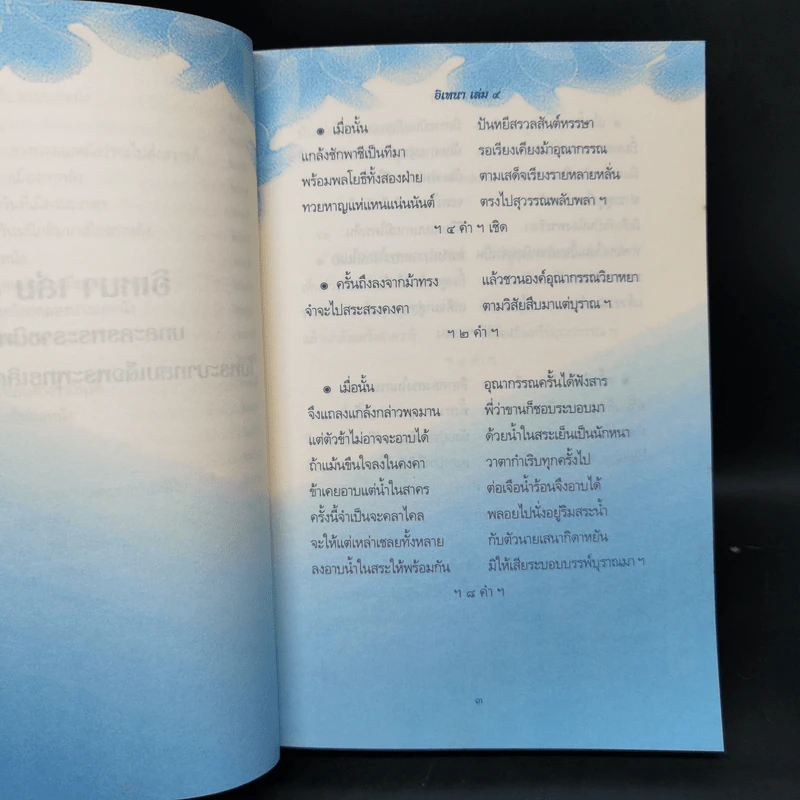 อิเหนา เล่ม ๔
๏ เมื่อนั้น ปันหยีสรวลสันต์หรรษา
แกล้งชักพาชีเป็นทีมา รอเรียงเคียงม้าอุณากรรณ
พร้อมพลโยธีทั้งสองฝ่าย ตามเสด็จเรียงรายหลายหลั่น
ทวยหาญแห่แหนแน่นนันต์ ตรงไปสุวรรณพลับพลา ฯ
ฯ ๔ คำ ฯ เชิด
๏ ครั้นถึงลงจากม้าทรง แล้วชวนองค์อุณากรรณวิยาหยา
จำจะไปสระสรงคงคา ตามวิสัยสืบมาแต่บุราณ ฯ
ฯ ๒ คำ ฯ
๏ เมื่อนั้น อุณากรรณครั้นได้ฟังสาร
จึงแถลงแกล้งกล่าวพจมาน พี่ว่าขานก็ชอบระบอบมา
แต่ตัวข้าไม่อาจจะอาบได้ ด้วยน้ำในสระเย็นเป็นนักหนา
ถ้าแม้นขืนใจลงในคงคา วาตากำเริบทุกครั้งไป
ข้าเคยอาบแต่น้ำในสาคร ต่อเจือน้ำร้อนจึงอาบได้
ครั้งนี้จำเป็นจะคลาไคล พลอยไปนั่งอยู่ริมสระน้ำ
จะให้แต่เหล่าเชลยทั้งหลาย กับตัวนายเสนากิดาหยัน
ลงอาบน้ำในสระให้พร้อมกัน มิให้เสียระบอบบรรพ์บุราณมา ฯ
ฯ ๘ คำ ฯ
๓